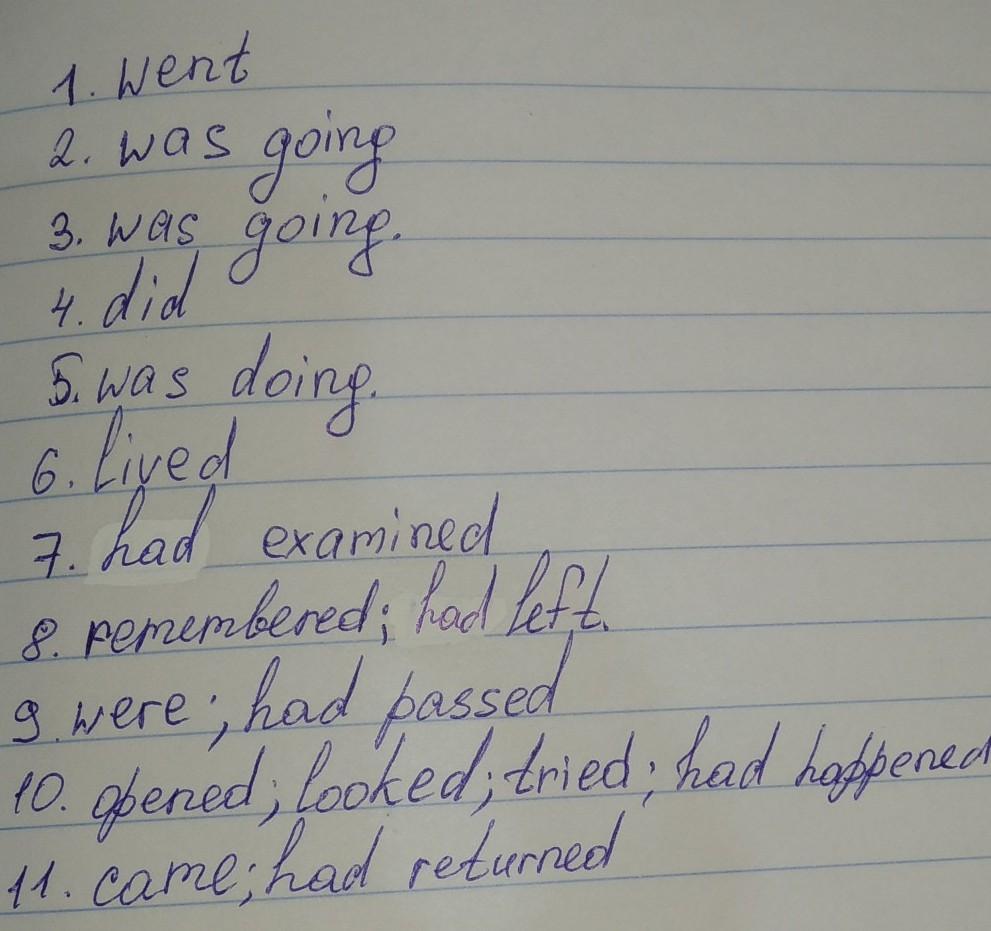 1. went
2. was going
3. was going.
4. did
5. was doing.
6. lived
7. had examined
8. remembered; had left.
9. were; had passed
10. opened; looked; tried; had happened
11. came; had returned